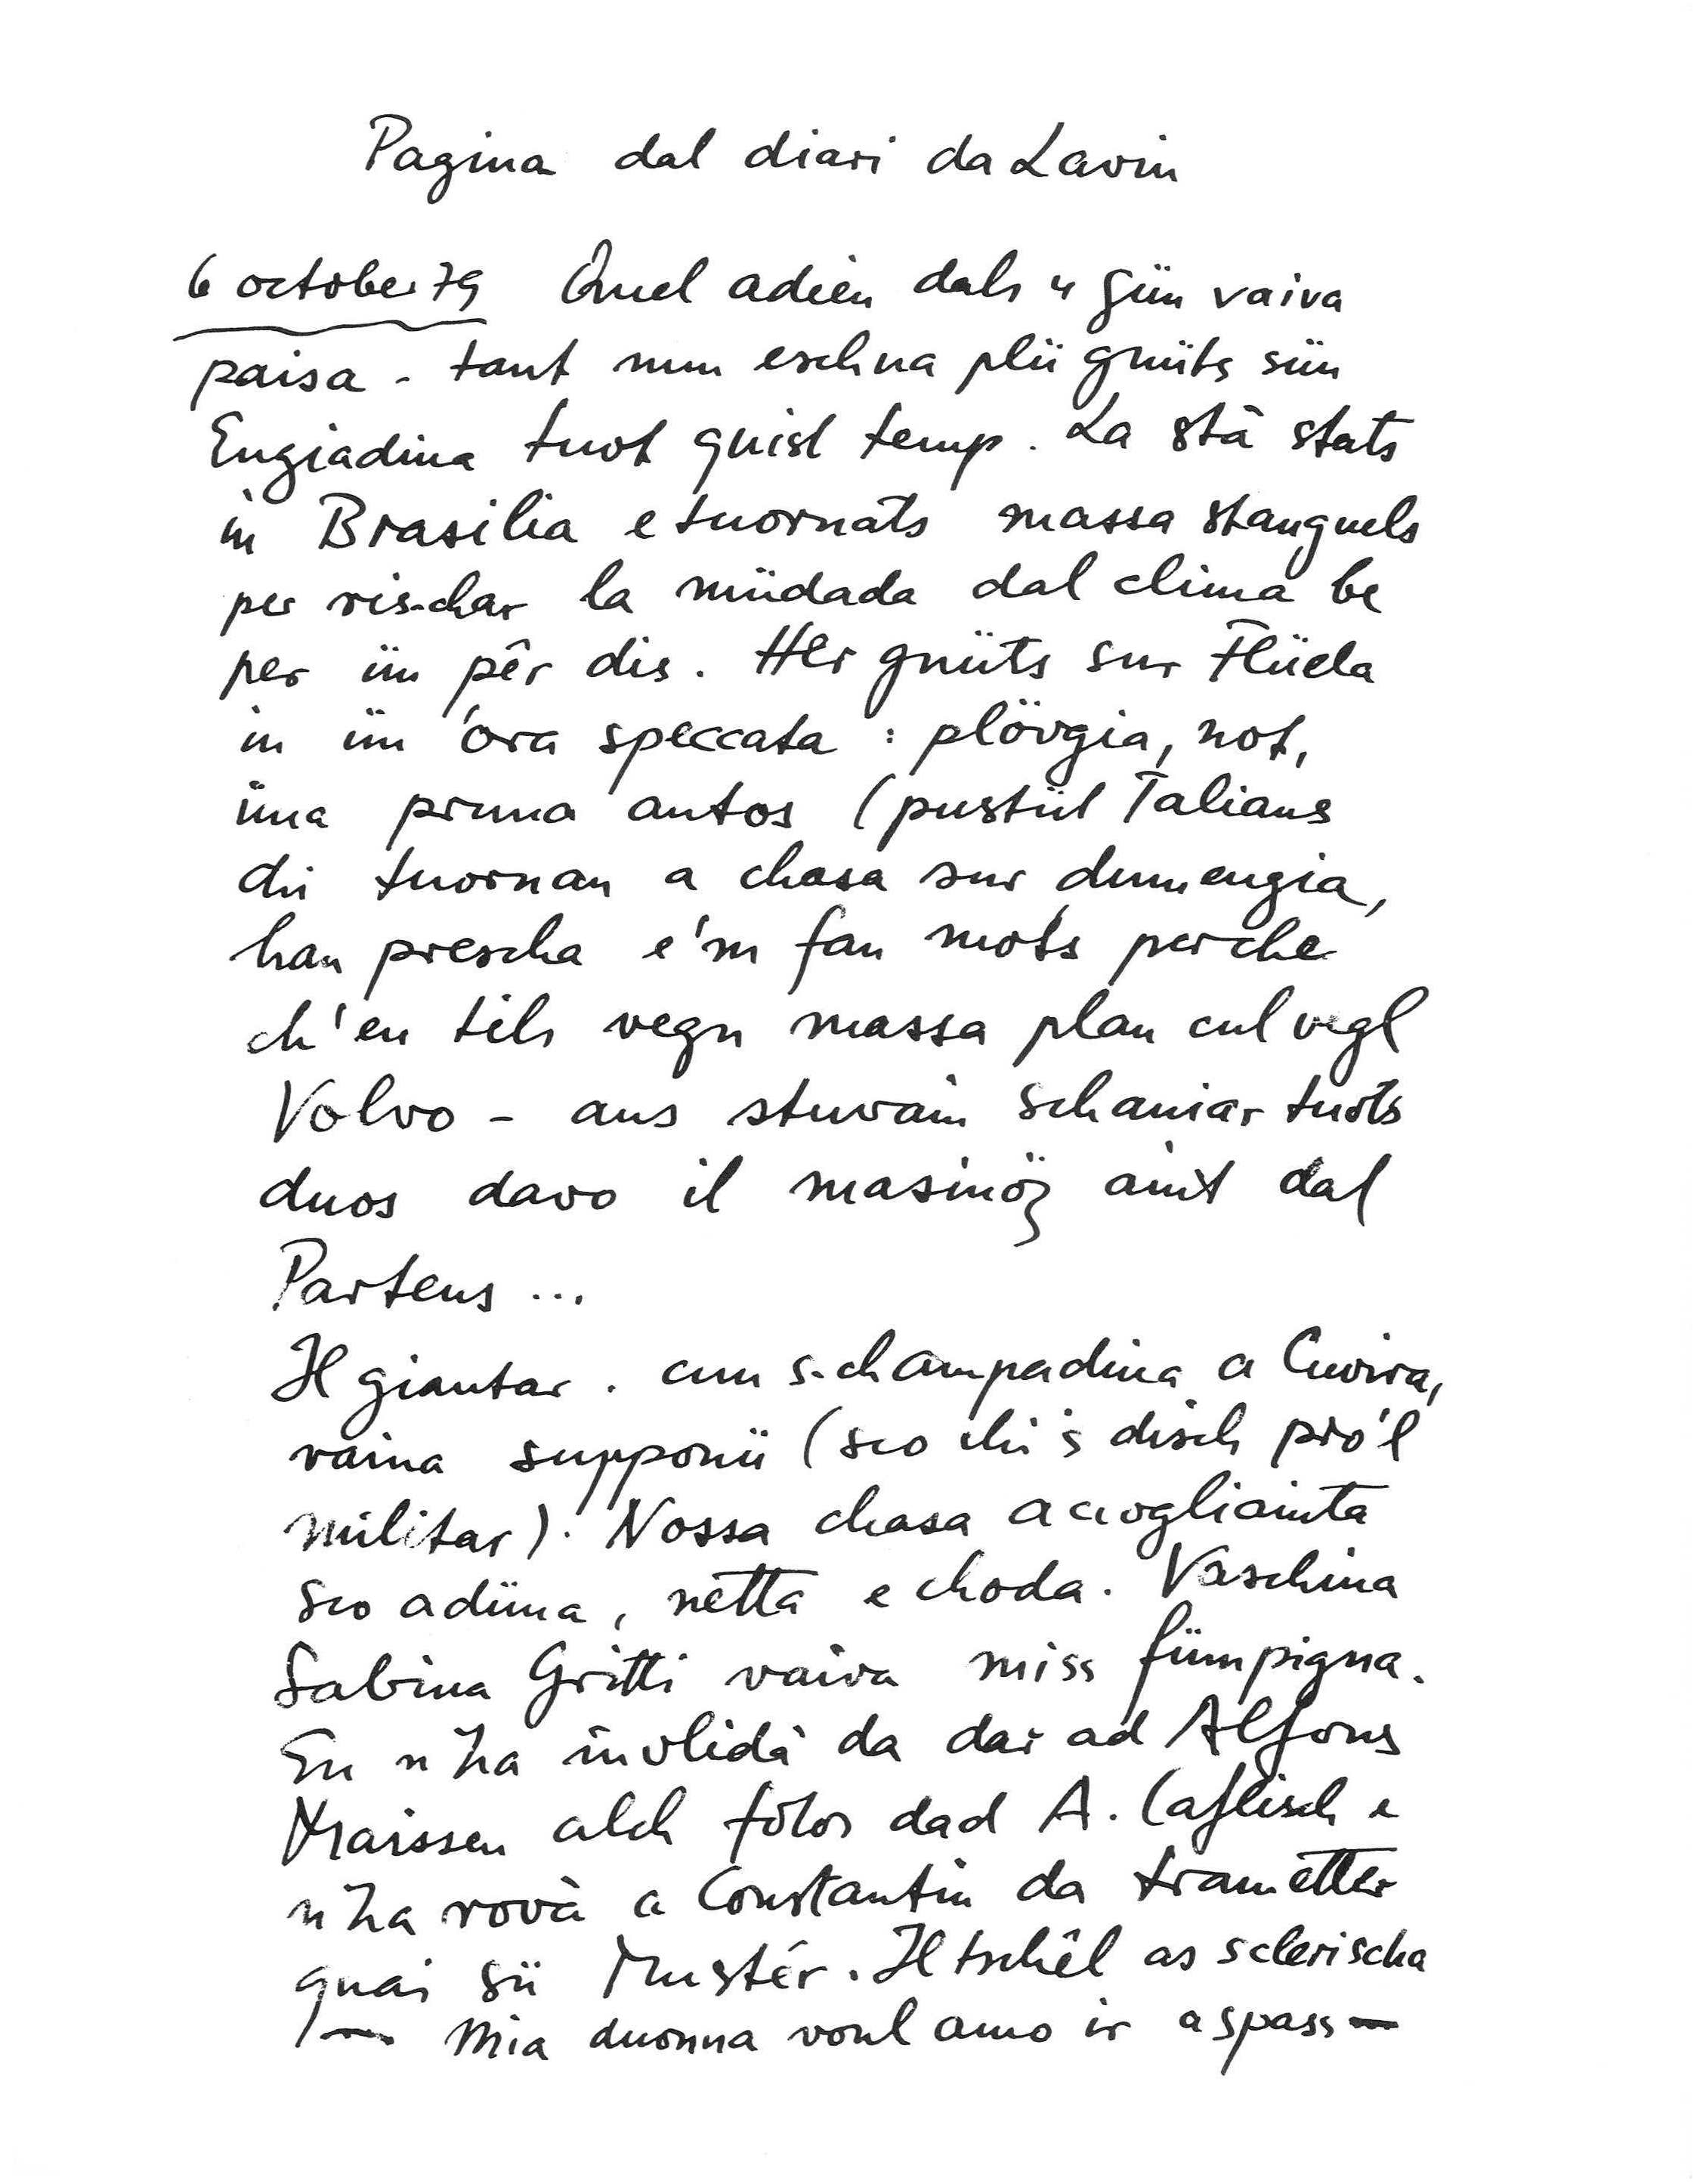 Pagina dal diari da Lavin
6 october 79 Quel adieu dals 4 gün vaiva
paisà - tant nun eschna plü gnüts sün
Engiadina tuot quist temp. La stà stats
in Brasilia e tuornats massa stanguels
per ris-char la müdada dal clima be
per ün pêr dis. Her gnüts sur Flüela
in ün'ora speccata : plövgia, not,
üna pruna autos (pustüt Talians
chi tuornan a chasa sur dumengia,
han prescha e'm fan mots perche
ch'eu tils vegn massa plan cul vegl
Volvo - ans stuvain schaniar tuots
duos davo il masinöz aint dal
Partens ...
Il giantar. cun s-champadina a Cuoira,
vaina supponü (sco chi's disch pro'l
militar). Nossa chasa accogliainta
sco adüna, netta e choda. Vaschina
Sabina Gritti vaiva miss fümpigna.
Eu n'ha invlidà da dar ad Alfons
Maissen alch fotos dad A. Caflisch e
n'ha rovà a Constantin da trametter
quai sü Mustér. Il tschêl as sclerischa
— Mia duonna voul amo ir a spass —